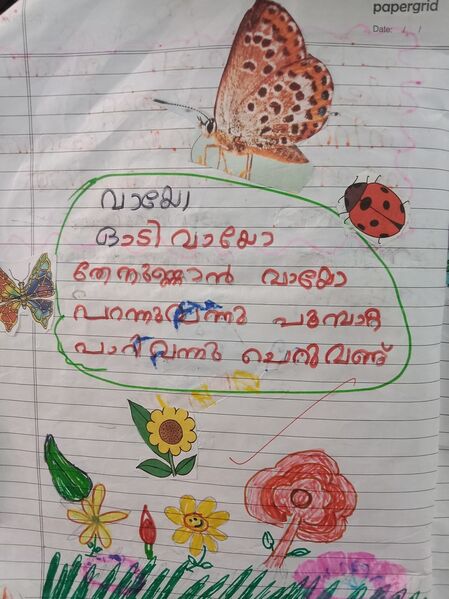 papergrid
Date: / /
വായോ
ഓടി വായോ
തേനുണ്ണാൻ വായോ
പറന്നു വന്നു പൂമ്പാറ്റ
പാറി വന്നു ചെറുവണ്ട്